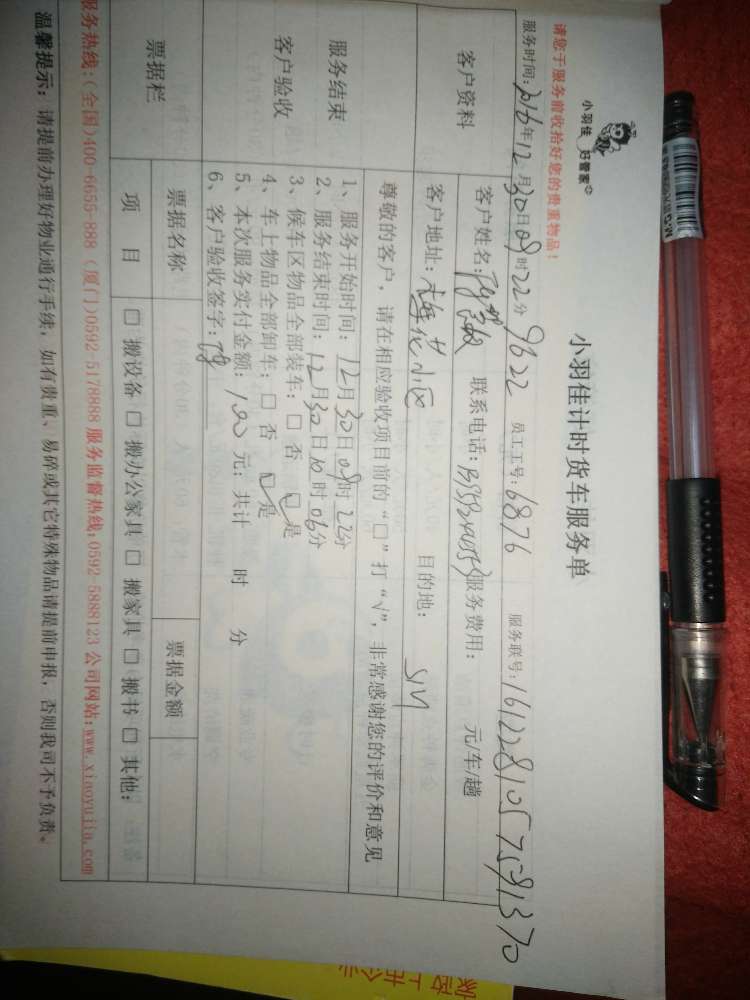 小羽佳 好管家
小羽佳计时货车服务单
请您于服务前收拾好您的贵重物品！
服务时间：2016年12月30日09时22分 9622 员工工号：6876 服务联号：1612281057591370
客户资料
客户姓名： 联系电话： 服务费用： 元/车/趟
客户地址： 小区 目的地：
尊敬的客户，请在相应验收项目前的“□”打“√”，非常感谢您的评价和意见
服务结束
客户验收
1、服务开始时间：12月30日09时22分
2、服务结束时间：12月30日10时06分
3、候车区物品全部装车：□ 否 ☑ 是
4、车上物品全部卸车：□ 否 ☑ 是
5、本次服务实付金额：100元；共计 时 分
6、客户验收签字：
票据栏
票据名称 票据金额
项 目 □ 搬设备 □ 搬办公家具 □ 搬家具 □ 搬书 □ 其他：
服务热线：(全国)400-6655-888 (厦门)0592-5178888 服务监督热线:0592-5888123 公司网站:www.xiaoyujia.com
温馨提示：请提前办理好物业通行手续，如有贵重、易碎或其它特殊物品请提前申报，否则我司不予负责。
家政上市企业